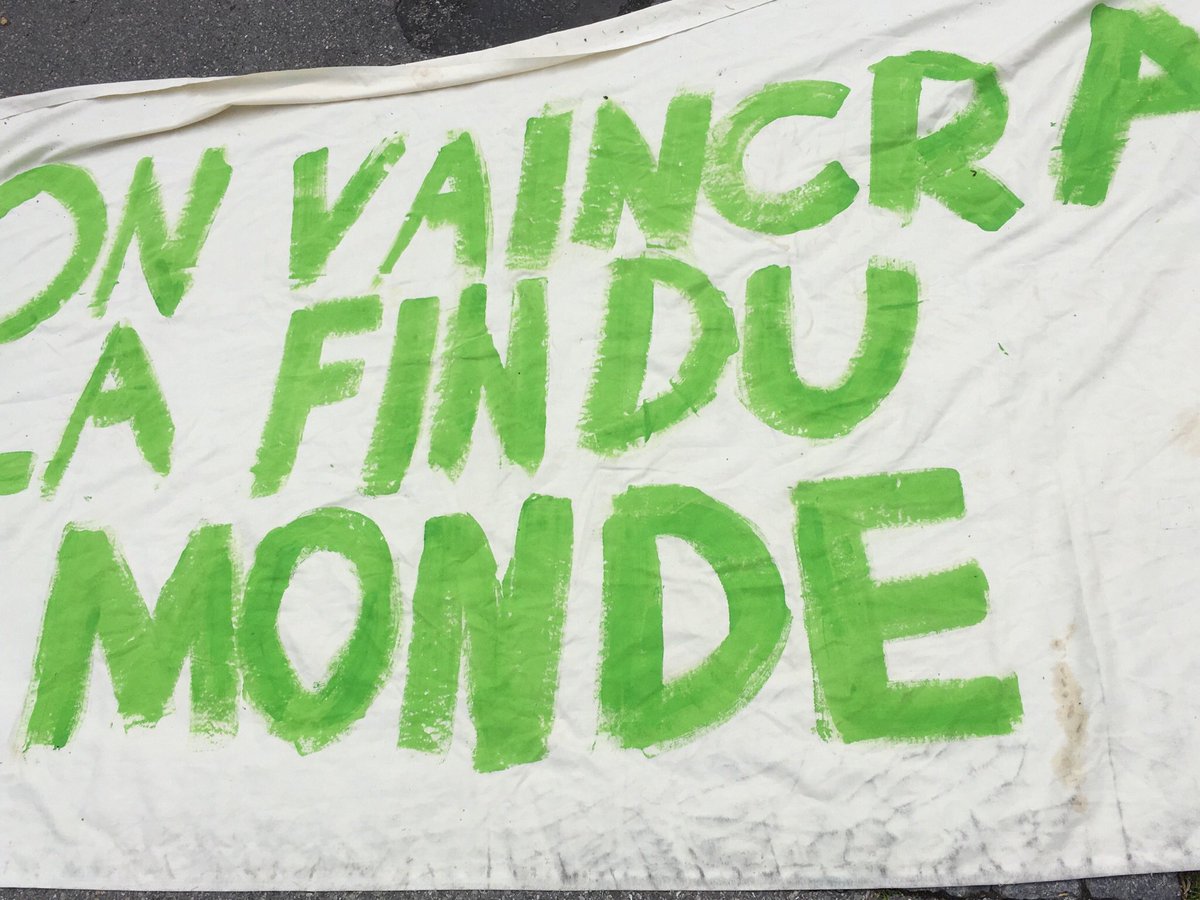 ON VAINCRA
LA FIN DU
MONDE